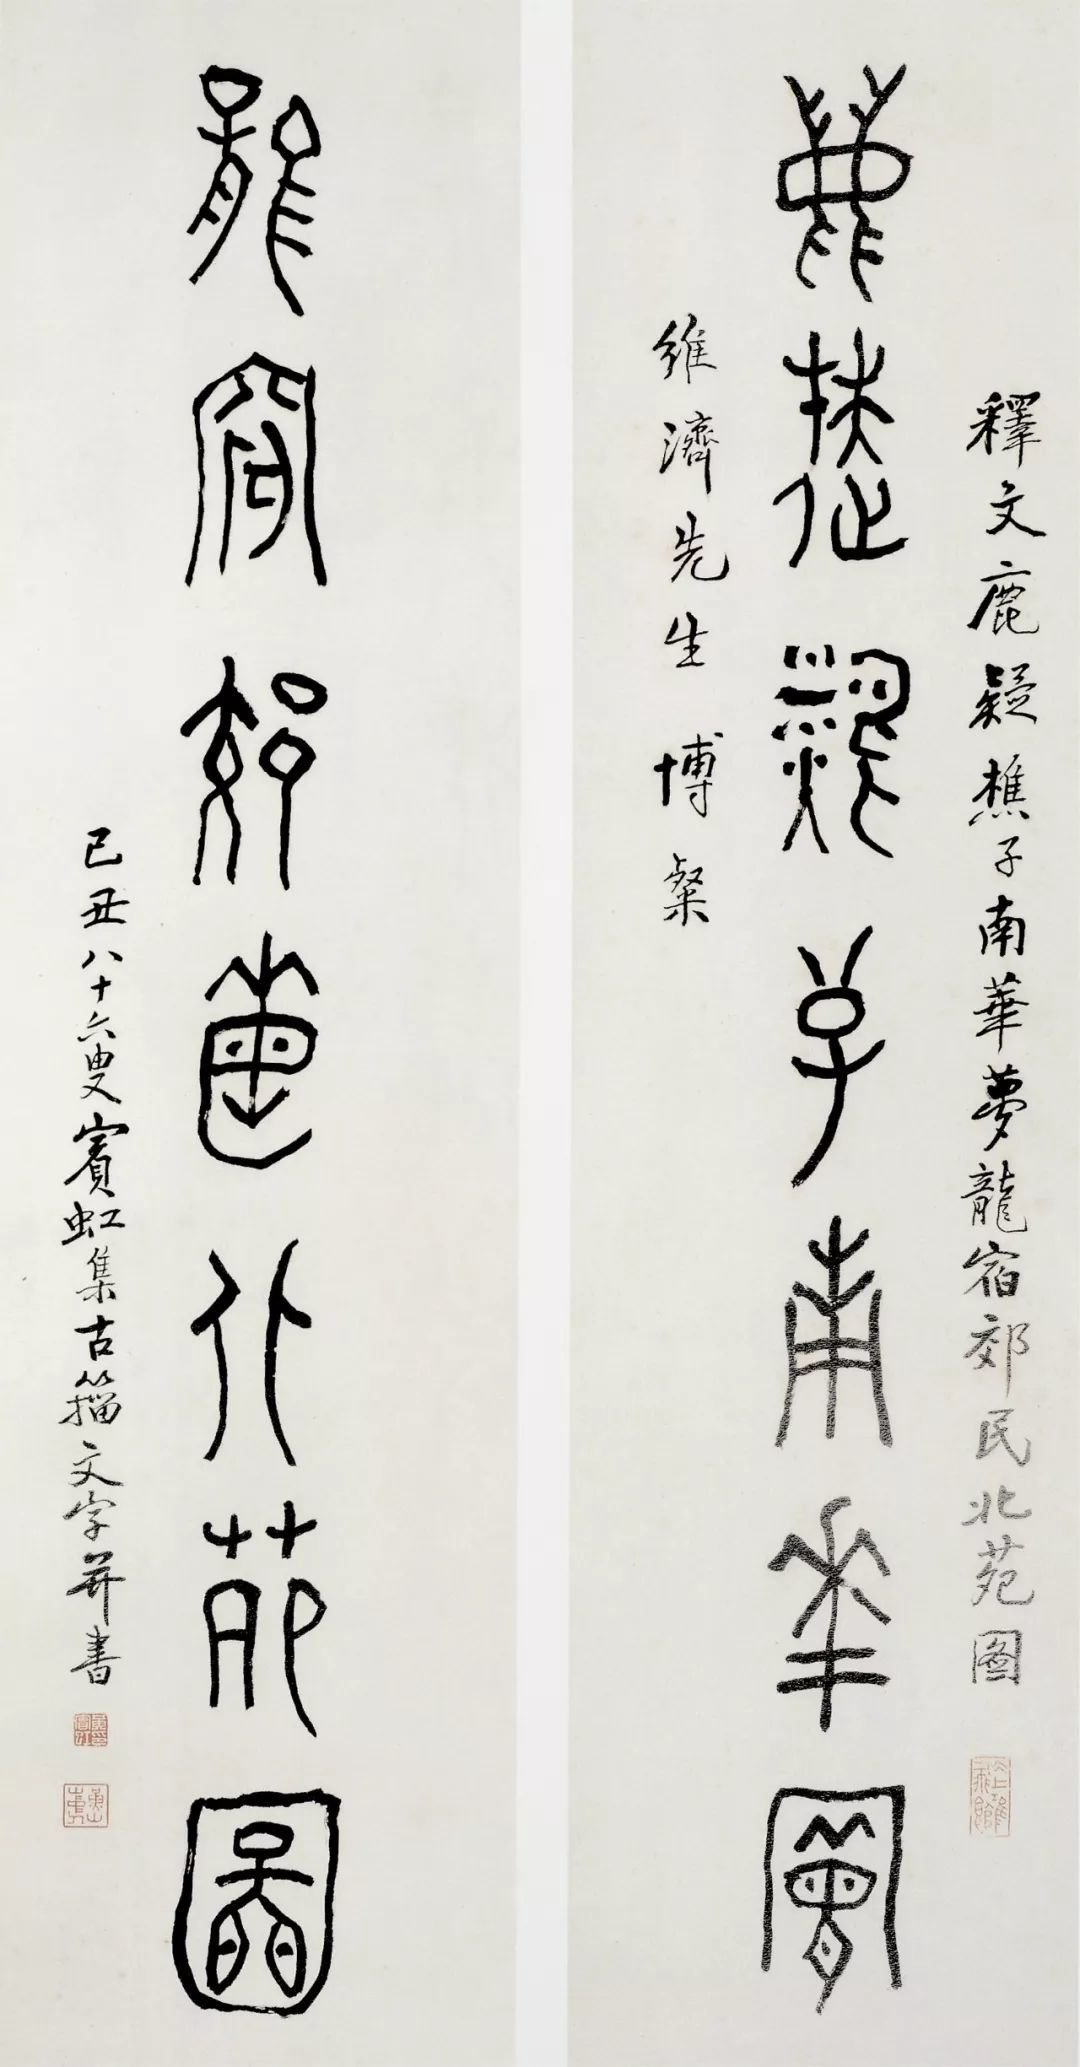 釋文鹿疑樵子南華夢龍宿郊民北苑圖
鹿疑樵子南華夢
維濟先生 博粲
龍宿郊民北苑圖
己丑八十六叟賓虹集古籀文字并書